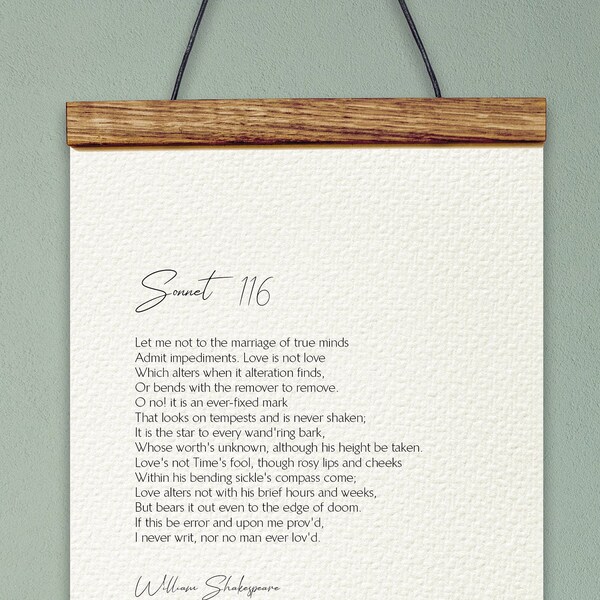 Sonnet 116
Let me not to the marriage of true minds
Admit impediments. Love is not love
Which alters when it alteration finds,
Or bends with the remover to remove.
O no! it is an ever-fixed mark
That looks on tempests and is never shaken;
It is the star to every wand'ring bark,
Whose worth's unknown, although his height be taken.
Love's not Time's fool, though rosy lips and cheeks
Within his bending sickle's compass come;
Love alters not with his brief hours and weeks,
But bears it out even to the edge of doom.
If this be error and upon me prov'd,
I never writ, nor no man ever lov'd.
William Shakespeare